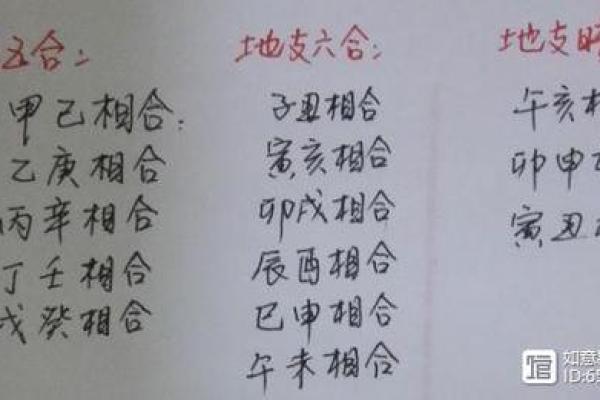 五合：
甲己相合：
乙庚相合
丙辛相合
丁壬相合
戊癸相合
地支六合：
子丑相合
寅亥相合
卯戌相合
辰酉相合
巳申相合
午未相合
地支暗
午亥相
卯申
寅丑
如意
ID:6